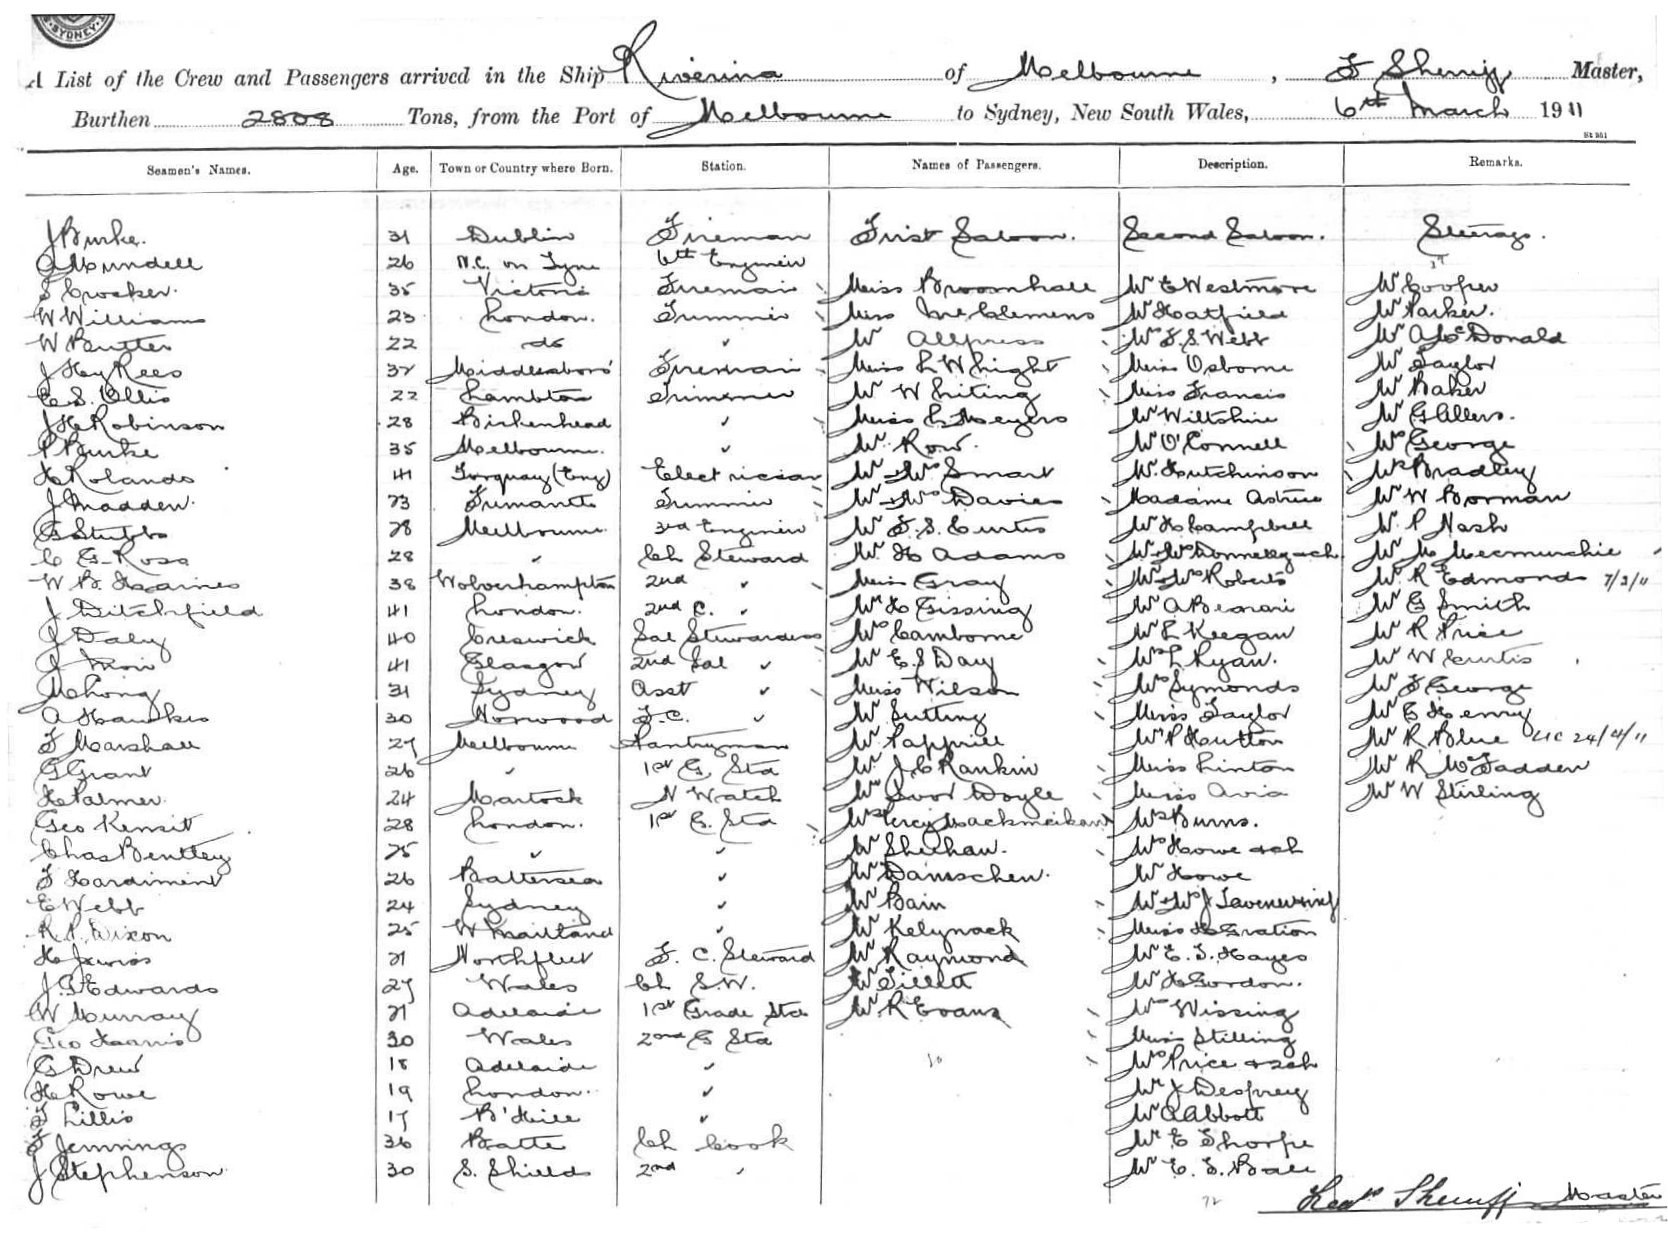 SYDNEY
A List of the Crew and Passengers arrived in the Ship Riverina of Melbourne, F Sherriff Master,
Burthen 2808 Tons, from the Port of Melbourne to Sydney, New South Wales, 6th March 1911
St 551
Seamen's Names. Age. Town or Country where Born. Station. Names of Passengers. Description. Remarks.
J Burke. 31 Dublin Fireman First Saloon. Second Saloon. Steerage.
A Mundell 26 N.C. on Tyne 6th Engineer
S Crocker. 35 Victoria Fireman Miss Broomhall Mr E Westmore Mr Cooper
W Williams 23 London. Trimmer Miss McClemens Mr Hatfield Mr Parker.
W Butter 22 do " Mr Allpress Mrs F. S. Webb Mr A McDonald
J Hy Rees 32 Middlesboro' Fireman Miss L Whight Miss Osborne Mr Taylor
E. S. Ollis 22 Lambton Trimmer Mr Whiting Miss Francis Mr Baker
J H Robinson 28 Birkenhead " Miss Meyers Mr Wiltshire Mr G Ellers.
P Burke 35 Melbourne. " Mr Row. Mr O'Connell Mrs George
H Rolands 41 Torquay (Eng) Electrician Mr & Mrs Smart Mr Hutchinson Mrs Bradley
J Madden. 23 Fremantle Trimmer Mr & Mrs Davies Madame Mr W Borman
G Stubbs 28 Melbourne 3rd Engineer Mr F. S. Curtis Mr H Campbell Mr P Nash
C G Ross 28 " Ch Steward Mr H Adams Mr & Mrs Donnelly & ch Mr M
W B. Haines 38 Wolverhampton 2nd " Miss Gray Mr & Mrs Roberts Mr R Edmonds 7/3/11
J Ditchfield 41 London. 2nd C. " Mr H Gissing Mr A Mr G Smith
J Daly 40 Creswick Sal Stewardess Mrs Camborne Mr L Keegan Mr R Price
41 Glasgow 2nd Sal " Mr E S Day Mrs L Ryan. Mr W Curtis
M Long 31 Sydney Asst " Miss Wilson Mrs Symonds Mr F George
A Hawkes 30 Norwood F. C. " Mr Sutting Miss Taylor Mr C Henry
F Marshall 27 Melbourne Pantryman Mr Papprill Mr P Hutton Mr R Blue 24/4/11
G Grant 26 " 1st G. Std Mr J. C Rankin Miss Linton Mr R McFadden
H Palmer. 24 Martock N Watch Mr Ivor Doyle Miss Avia Mr W Stirling
Geo Kensit 28 London. 1st G. Std Mrs Percy Mrs Burns.
Chas Bentley 25 " " Mr Sheehan. Mrs Howe & ch
F Hardiment 26 Battersea " Mr Damschen. Mr Howe
E Webb 24 Sydney " Mr Bain Mr & Mrs J
R. P. Dixon 25 W Maitland " Mr Kelynack Miss H Gration
H Jarvis 21 Northfleet F. C. Steward Mr Raymond Mr E. S. Hayes
J. G Edwards 27 Wales Ch S. W. Mr Tillett Mr H Gordon.
W Murray 21 Adelaide 1st Grade Std Mr R Evans Mr Wissing
Geo Harris 30 Wales 2nd G Std Miss Stilling
G Drew 18 Adelaide " Mrs Price & 2ch
H Rowe 19 London. " Mr J Desprey
F Lillis 17 B'Hill " Mr A Abbott
F Jennings 36 Batte Ch Cook Mr E Thorpe
J Stephenson 30 S. Shields 2nd " Mr E. S. Ball
Sherriff Master